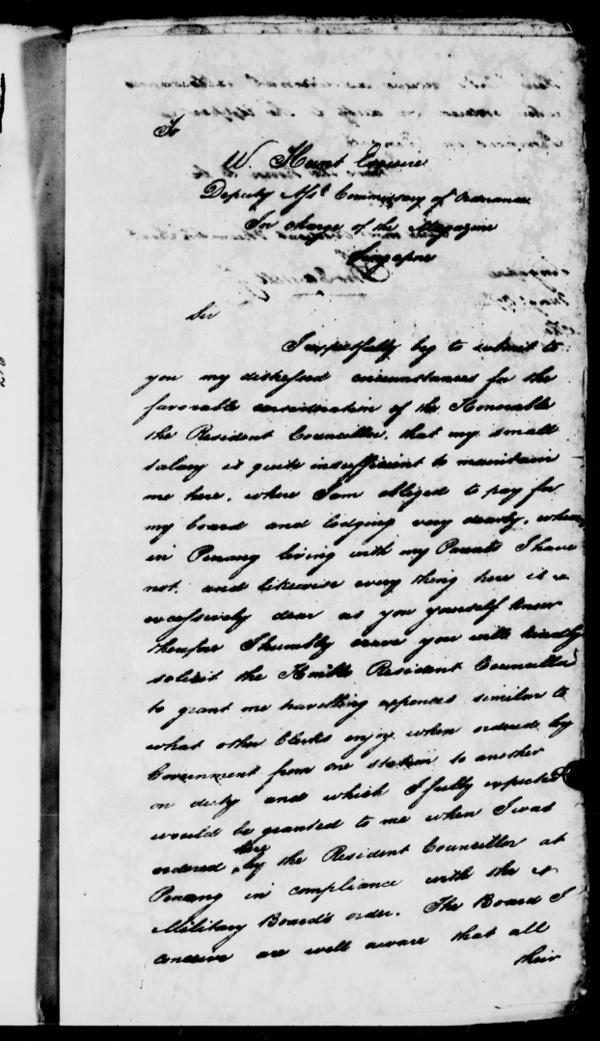 To
W. Hunt Esquire
Deputy Asst. Commissary of Ordnance
In charge of the Magazine
Singapore
Sir
I respectfully beg to submit to
you my distressed circumstances for the
favorable consideration of the Honorable
the Resident Councillor, that my small
salary is quite insufficient to maintain
me here, where I am obliged to pay for
my board and lodging very dearly, when
in Penang living with my Parents I have
not, and likewise every thing here is
excessively dear as you yourself know
therefore I humbly crave you will kindly
solicit the Honble Resident Councillor
to grant me travelling expences similar to
what other Clerks enjoy when ordered by
Government from one station to another
on duty and which I fully expected
would be granted to me when I was
ordered here by the Resident Councillor at
Penang in compliance with the
Military Board's order. The Board I
conceive are well aware that all
their